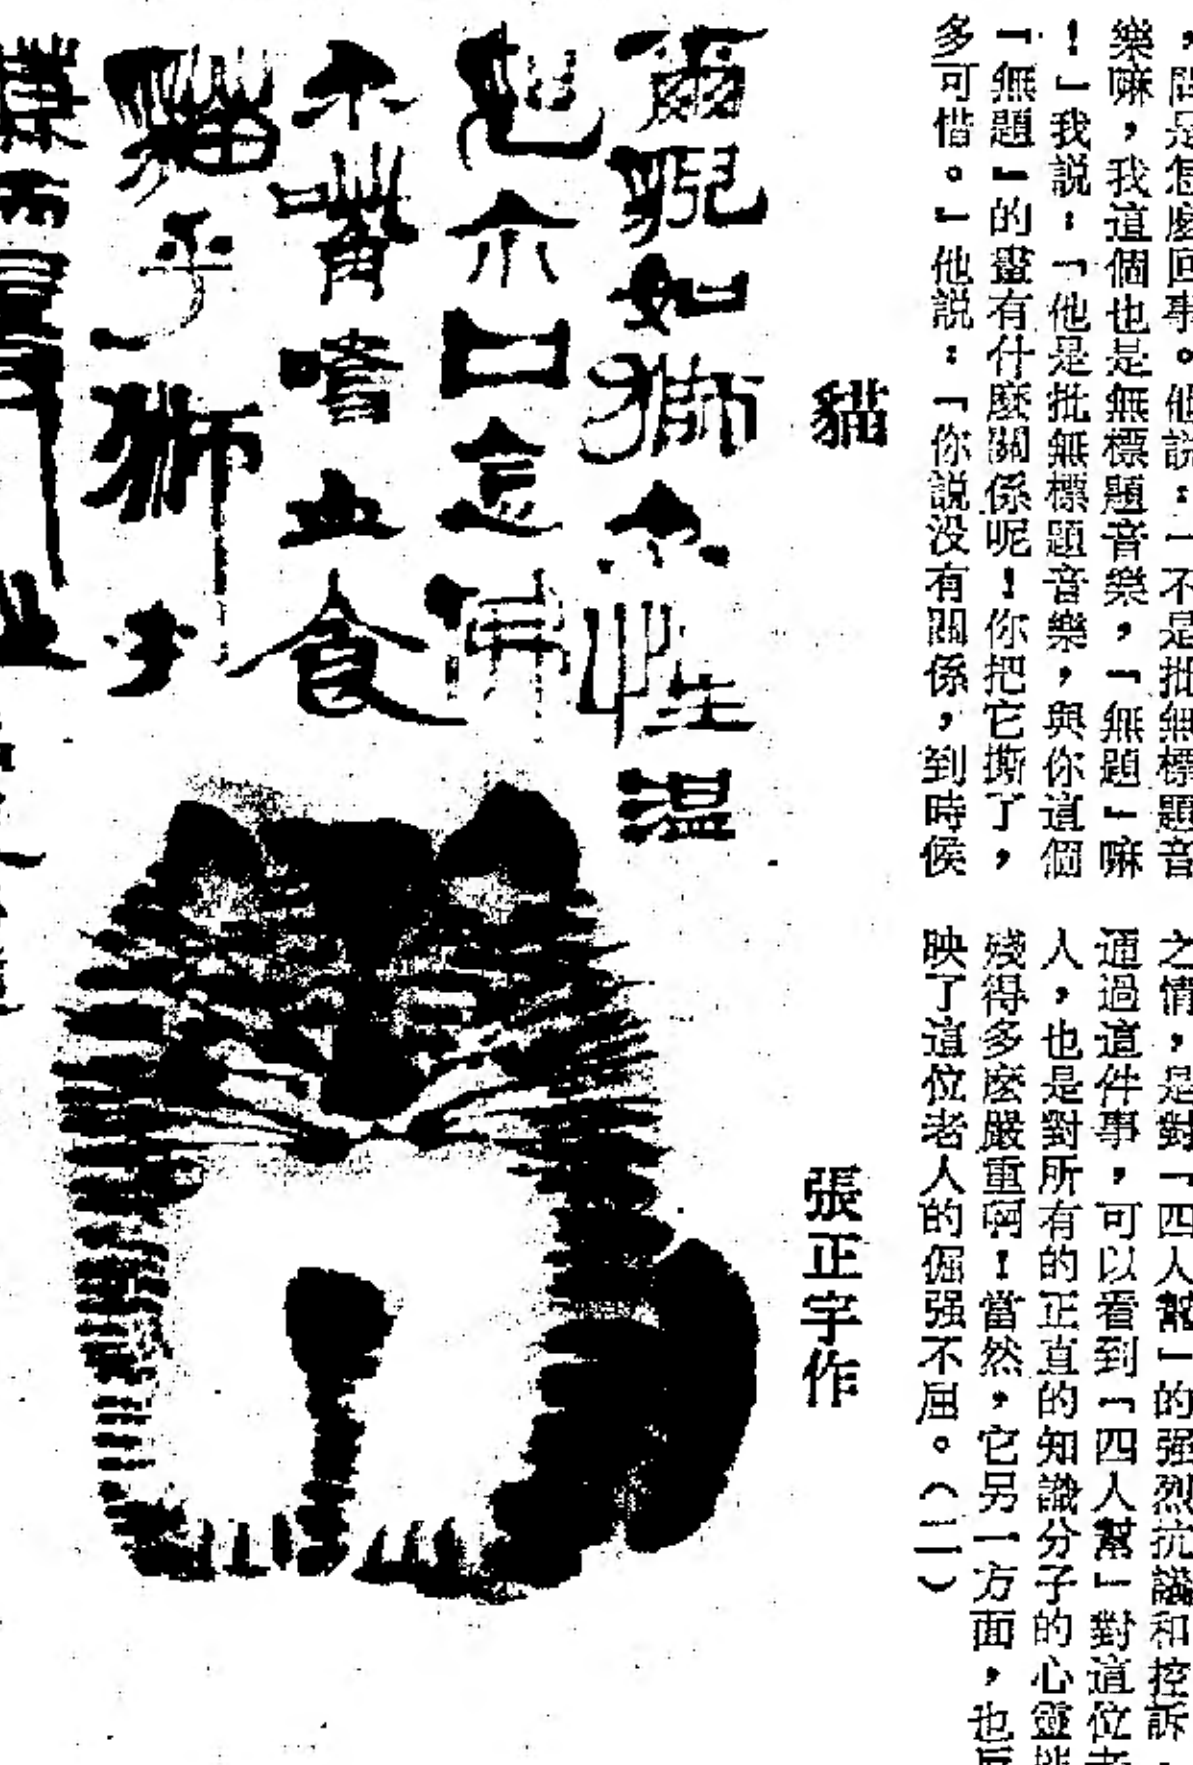 ，問是怎麽回事。他說：「不是批無標題音
樂嘛，我這個也是無標題音樂，「無題」嘛
！」我説：「他是批無標題音樂，與你這個
「無題」的畫有什麽關係呢！你把它撕了，
多可惜。」他説：「你説没有關係，到時侯
之情，是對「四人幫」的强烈抗議和控訴，
通過這件事，可以看到「四人幫」對這位老
人，也是對所有的正直的知識分子的心靈摧
殘得多麽嚴重啊！當然，它另一方面，也反
映了這位老人的倔强不屈。（二）
貓
張正宇作
爾貌如獅 性溫
口
不嘴嗜血食
貓乎獅子